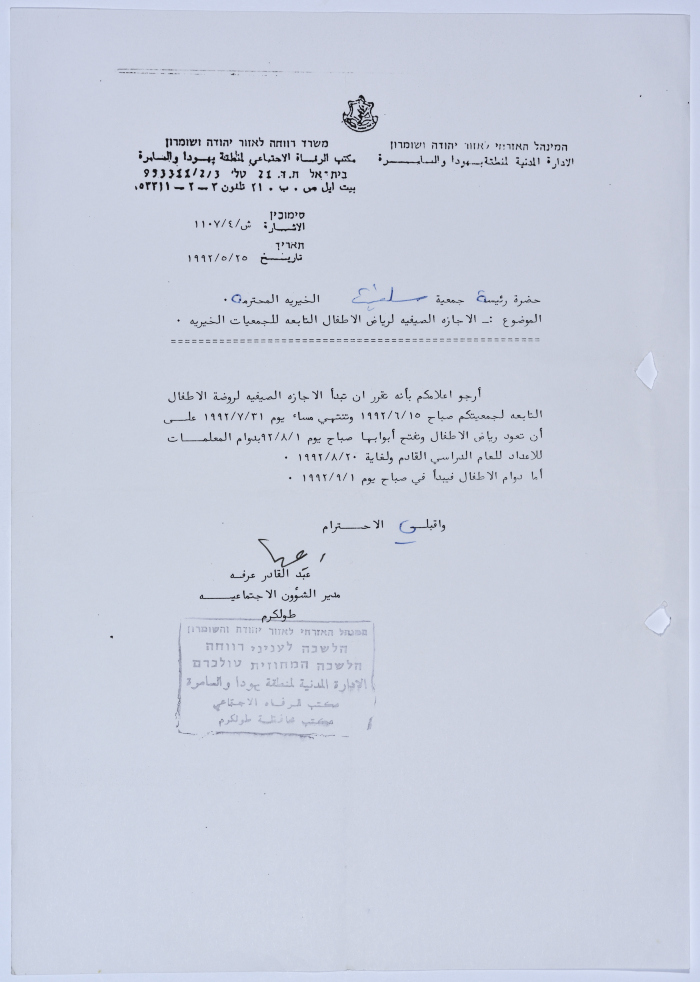 המינהל האזרחי לאזור יהודה ושומרון
الادارة المدنية لمنطقة يهودا والسامرة
משרד רווחה לאזור יהודה ושומרון
مكتب الرفاة الاجتماعي لمنطقة يهودا والسامرة
בית־אל ת.ד. 21 טלי 993311/2/3
بيت ايل ص . ب . ٢١ تلفون ٣ - ٢ - ٥٣٣١١
סימוכין
الاشارة ش/٤/١١٠٧
תאריך
تاريخ ١٩٩٢/٥/٢٥
حضرة رئيسة جمعية الخيريه المحترمه .
الموضوع :ـ الاجازه الصيفيه لرياض الاطفال التابعه للجمعيات الخيريه .
أرجو اعلامكم بأنه تقرر ان تبدأ الاجازه الصيفيه لروضة الاطفال
التابعه لجمعيتكم صباح ١٩٩٢/٦/١٥ وتنتهي مساء يوم ١٩٩٢/٧/٣١ على
أن تعود رياض الاطفال وتفتح أبوابها صباح يوم ٩٢/٨/١ بدوام المعلمات
للاعداد للعام الدراسي القادم ولغاية ١٩٩٢/٨/٢٠ .
أما دوام الاطفال فيبدأ في صباح يوم ١٩٩٢/٩/١ .
واقبلي الاحترام
عبد القادر عرفه
مدير الشؤون الاجتماعيه
طولكرم
המינהל האזרחי לאזור יהודה והשומרון
הלשכה לעניני רווחה
הלשכה המחוזית טולכרם
الادارة المدنية لمنطقة يهودا والسامرة
مكتب الرفاه الاجتماعي
مكتب محافظة طولكرم